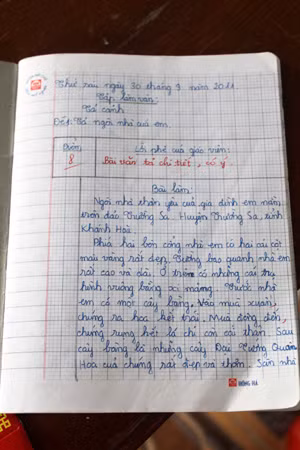 Thứ sau ngày 30 tháng 9 năm 2011
Tập làm văn:
Tả cảnh
Đề: Tả ngôi nhà của em.
Điểm
8
Lời phê của giáo viên:
Bài văn tả chi tiết, có ý
Bài làm:
Ngôi nhà thân yêu của gia đình em nằm
trên đảo Trường Sa. Huyện Trường Sa, tỉnh
Khánh Hoà.
Phía hai bên cổng nhà em có hai cái cột
màu vàng rất đẹp. Tường bao quanh nhà em
rất cao và dài. Ở trên có những cái trụ
hình vuông bằng xi măng. Trước nhà
em có một cây bàng. Vào mùa xuân,
chúng ra hoa kết trái. Mùa đông đến,
chúng rụng hết lá chỉ còn cái thân. Sau
cây bàng là những cây Đại Tướng Quân
Hoa của chúng rất đẹp và thơm. Sân nhà
HỒNG HÀ